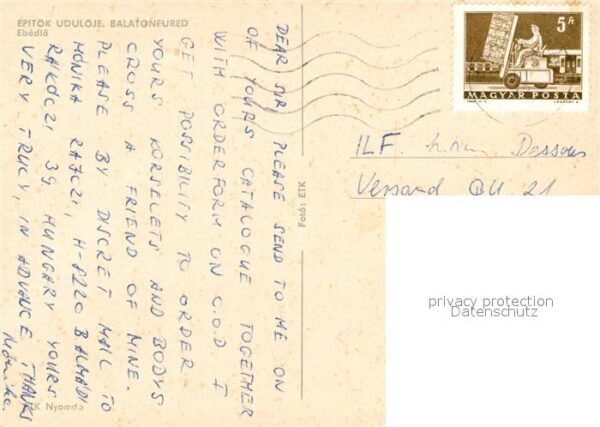 ÉPITŐK ÜDÜLŐJE, BALATONFÜRED
Ebédlő
DEAR SIR, PLEASE SEND TO ME ON
OF YOURS CATALOGUE TOGETHER
WITH ORDERFORM ON C.O.D. I
GET POSSIBILITY TO ORDER
YOURS KORSELETS AND BODYS
CROSS A FRIEND OF MINE.
PLEASE BY DISCRET MAIL TO
MONIKA RAJCZI, H-8220 BALMÁDI
RÁKÓCZI 39 HUNGARY YOURS
VERY TRULY, IN ADVANCE THANKS
Monika
Nyomda
Fotó: ETK
5 Ft
MAGYAR POSTA
ILF. Dessous
Versand 21
privacy protection
Datenschutz